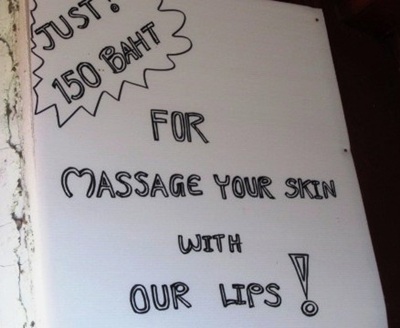 JUST!
150 BAHT
FOR
MASSAGE YOUR SKIN
WITH
OUR LIPS!